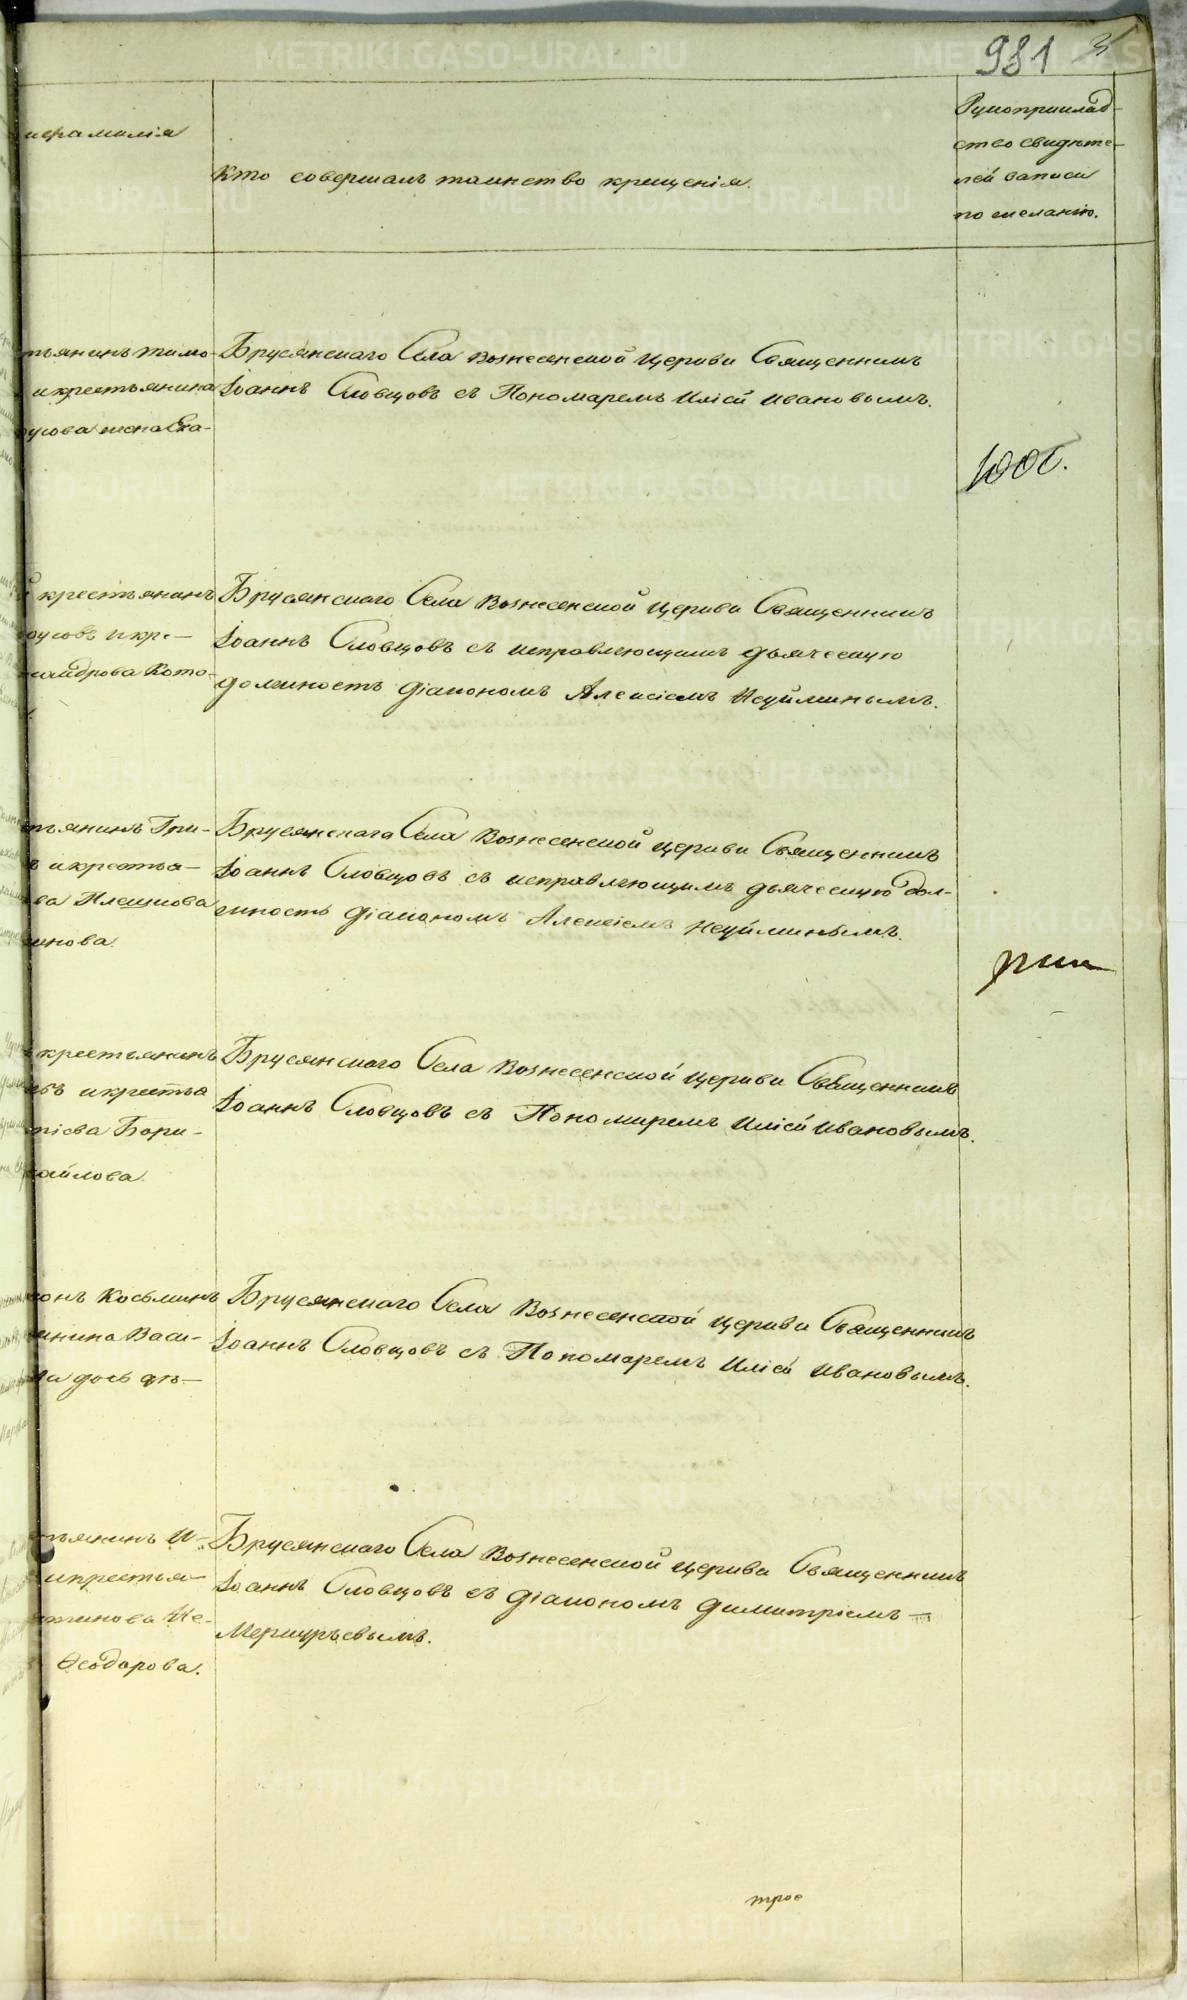 981 3
и фамилія
Кто совершалъ таинство крещенія.
Рукоприклад-
ство свидѣте-
лей записи
по желанію.
тьянинъ Тимо-
и крестьянина
усова жена Ека-
Брусянскаго Села Вознесенской Церкви Священникъ
Іоаннъ Словцовъ съ Пономаремъ Иліей Ивановымъ.
крестьянинъ
оусовъ и кре-
сандрова Кото-
Брусянскаго Села Вознесенской Церкви Священникъ
Іоаннъ Словцовъ съ исправляющимъ дьяческую
должность Діакономъ Алексіемъ Неуйминымъ.
тьянинъ Гри-
и крестья-
ва Плешкова
нова.
Брусянскаго Села Вознесенской Церкви Священникъ
Іоаннъ Словцовъ съ исправляющимъ дьяческую дол-
жность Діакономъ Алексіемъ Неуйминымъ.
крестьянинъ
въ и крестья
тіева Бори-
айлова.
Брусянскаго Села Вознесенской Церкви Священникъ
Іоаннъ Словцовъ съ Пономаремъ Иліей Ивановымъ.
онъ Косьминъ
нина Васи-
ла дочь дѣ-
Брусянскаго Села Вознесенской Церкви Священникъ
Іоаннъ Словцовъ съ Пономаремъ Иліей Ивановымъ.
тьянинъ И-
и крестья-
тинова Не-
Ѳеодорова.
Брусянскаго Села Вознесенской Церкви Священникъ
Іоаннъ Словцовъ съ Діакономъ Димитріемъ
Меркурьевымъ.
трое
METRIKI.GASO-URAL.RU